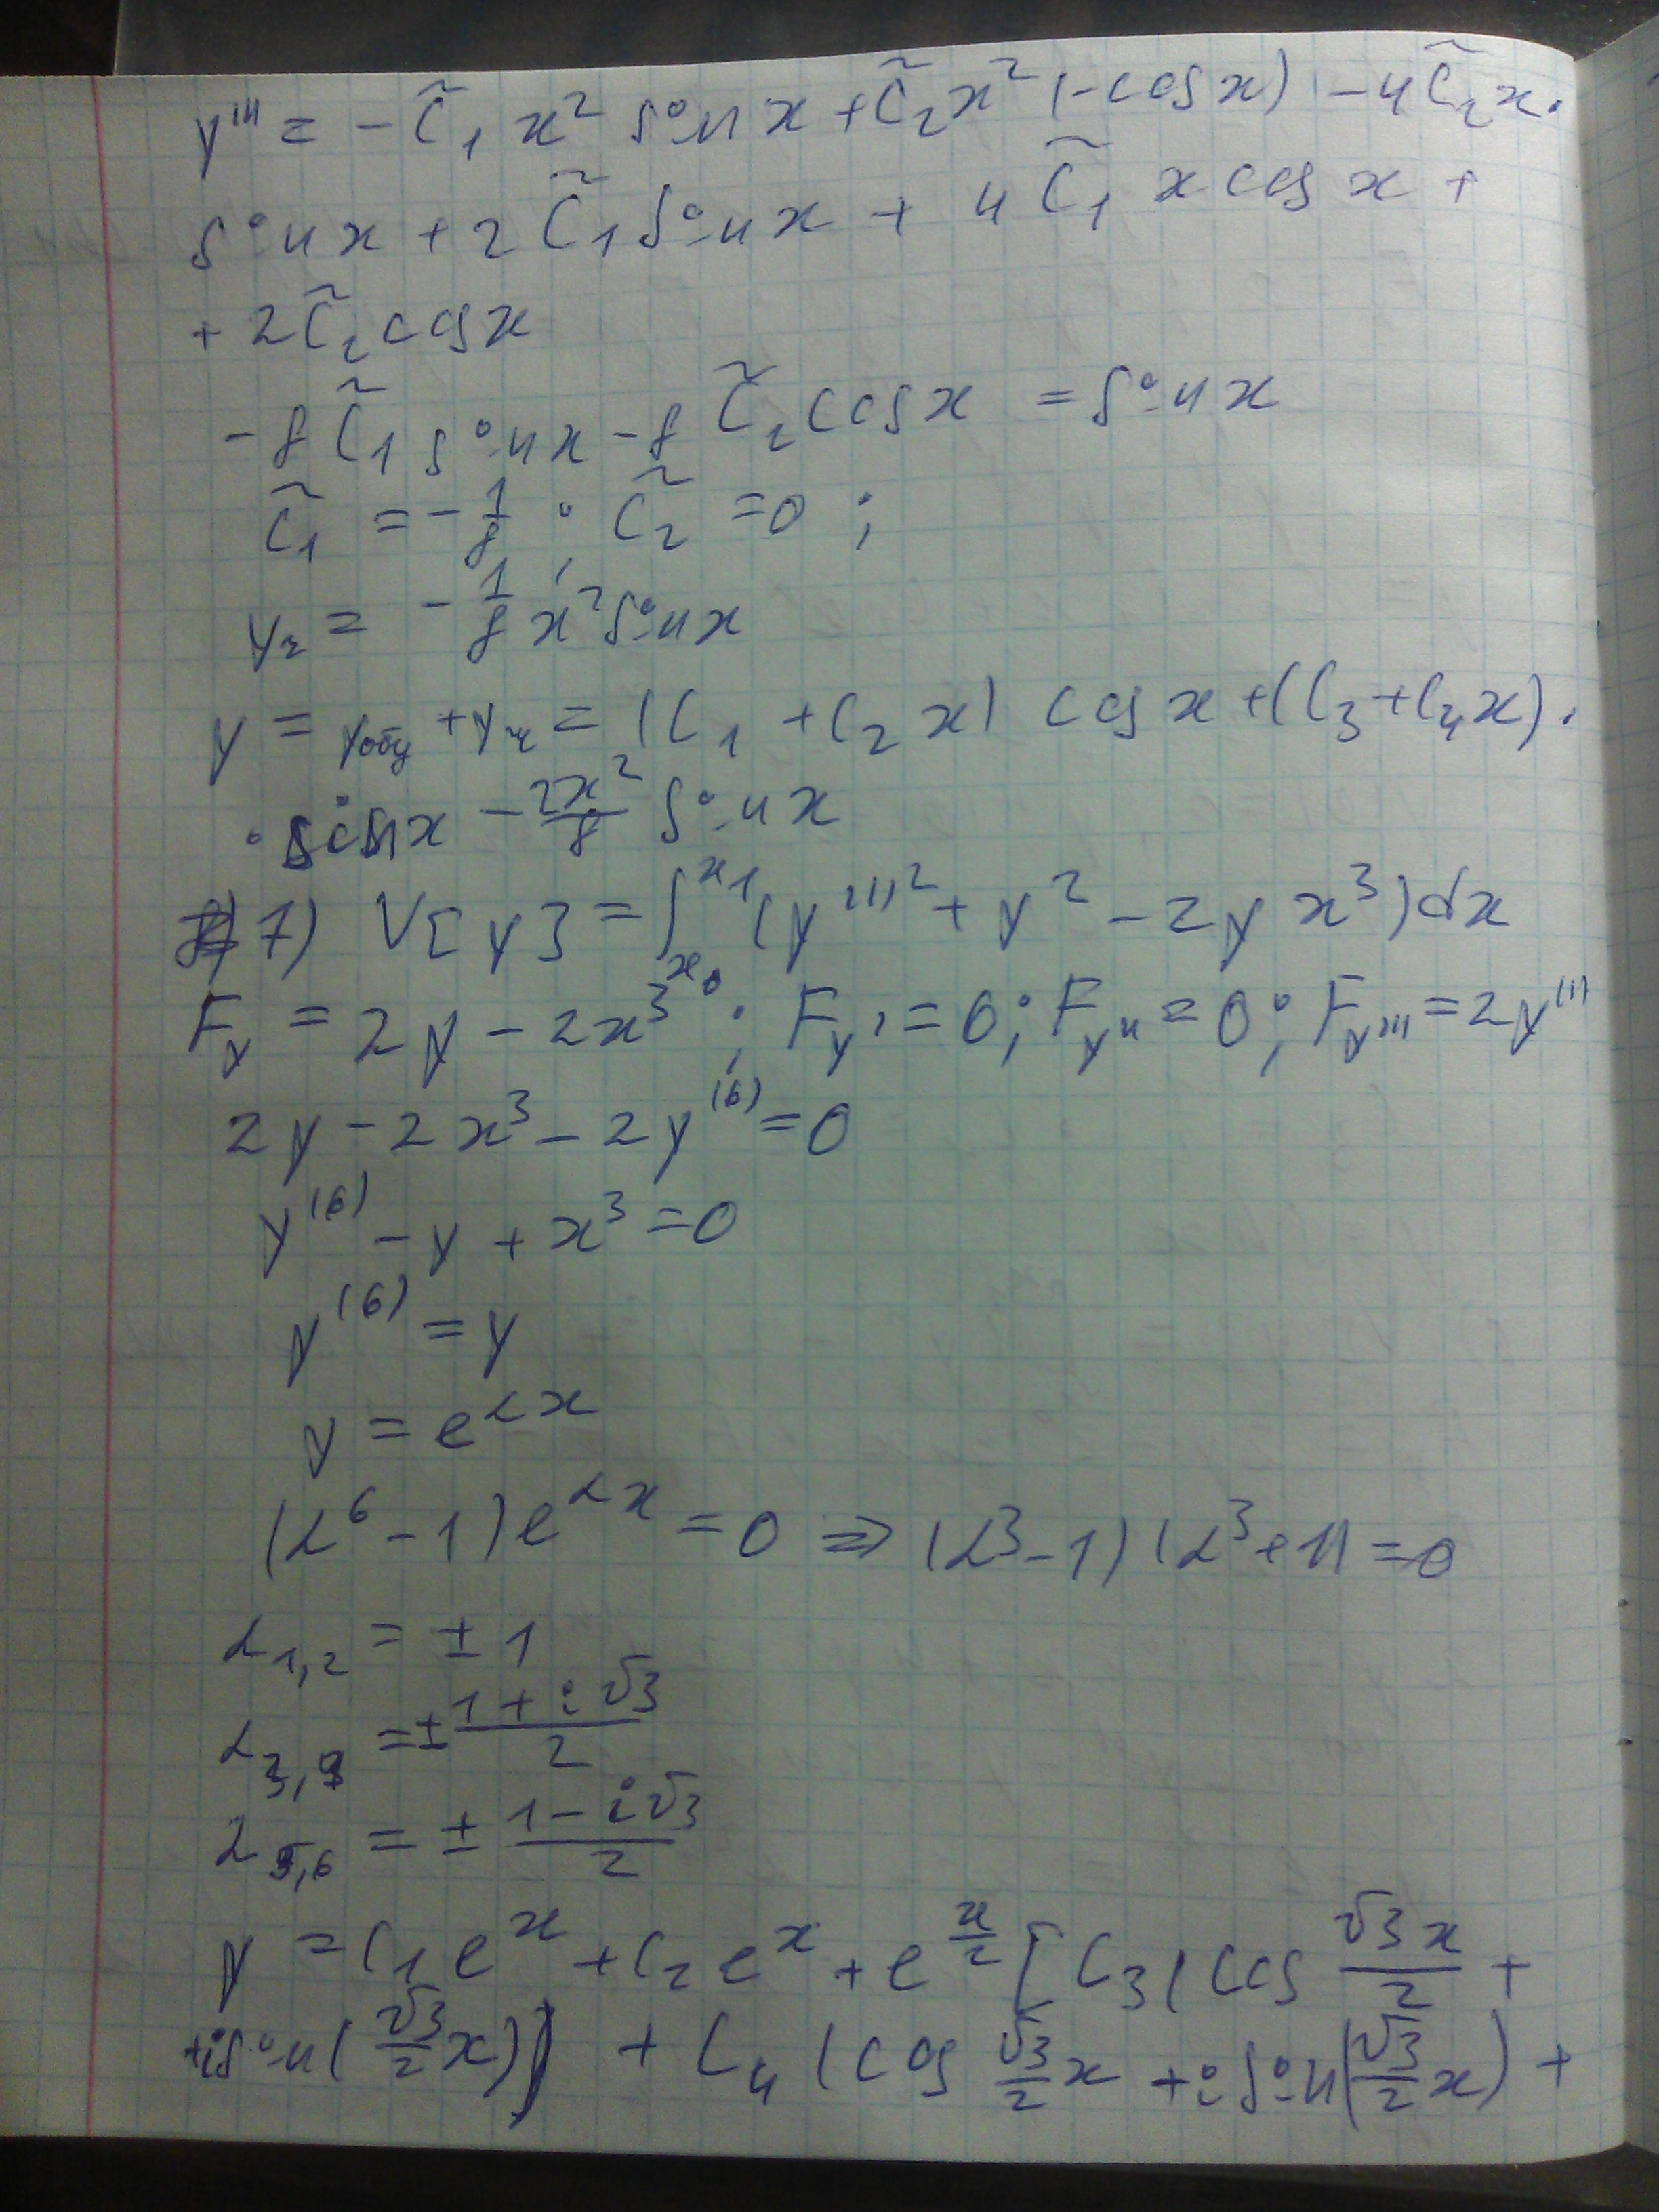 y''' = -C̃₁ x² sin x + C̃₂x² (-cos x) - 4C̃₂x·
sin x + 2 C̃₁ sin x + 4 C̃₁ x cos x +
+ 2C̃₂ cos x
-8 C̃₁ sin x - 8 C̃₂ cos x = sin x
C̃₁ = -1/8 ; C̃₂ = 0 ;
yч = -1/8 x² sin x
y = yобщ + yч = (C₁ + C₂ x) cos x + (C₃ + C₄x)·
· sin x - 2x²/8 sin x
7) V[y] = ∫_{x₀}^{x₁} (y'''² + y² - 2y x³) dx
F_y = 2y - 2x³ ; F_y' = 0 ; F_y'' = 0 ; F_y''' = 2y'''
2y - 2x³ - 2y⁽⁶⁾ = 0
y⁽⁶⁾ - y + x³ = 0
y⁽⁶⁾ = y
y = e^{αx}
(α⁶ - 1) e^{αx} = 0 ⇒ (α³ - 1)(α³ + 1) = 0
α₁,₂ = ± 1
α₃,₄ = ± (1 + i√3)/2
α₅,₆ = ± (1 - i√3)/2
y = C₁ e^x + C₂ e^x + e^{x/2} [C₃ (cos √3x/2 +
+ i sin (√3/2 x)) + C₄ (cos √3/2 x + i sin (√3/2 x) +